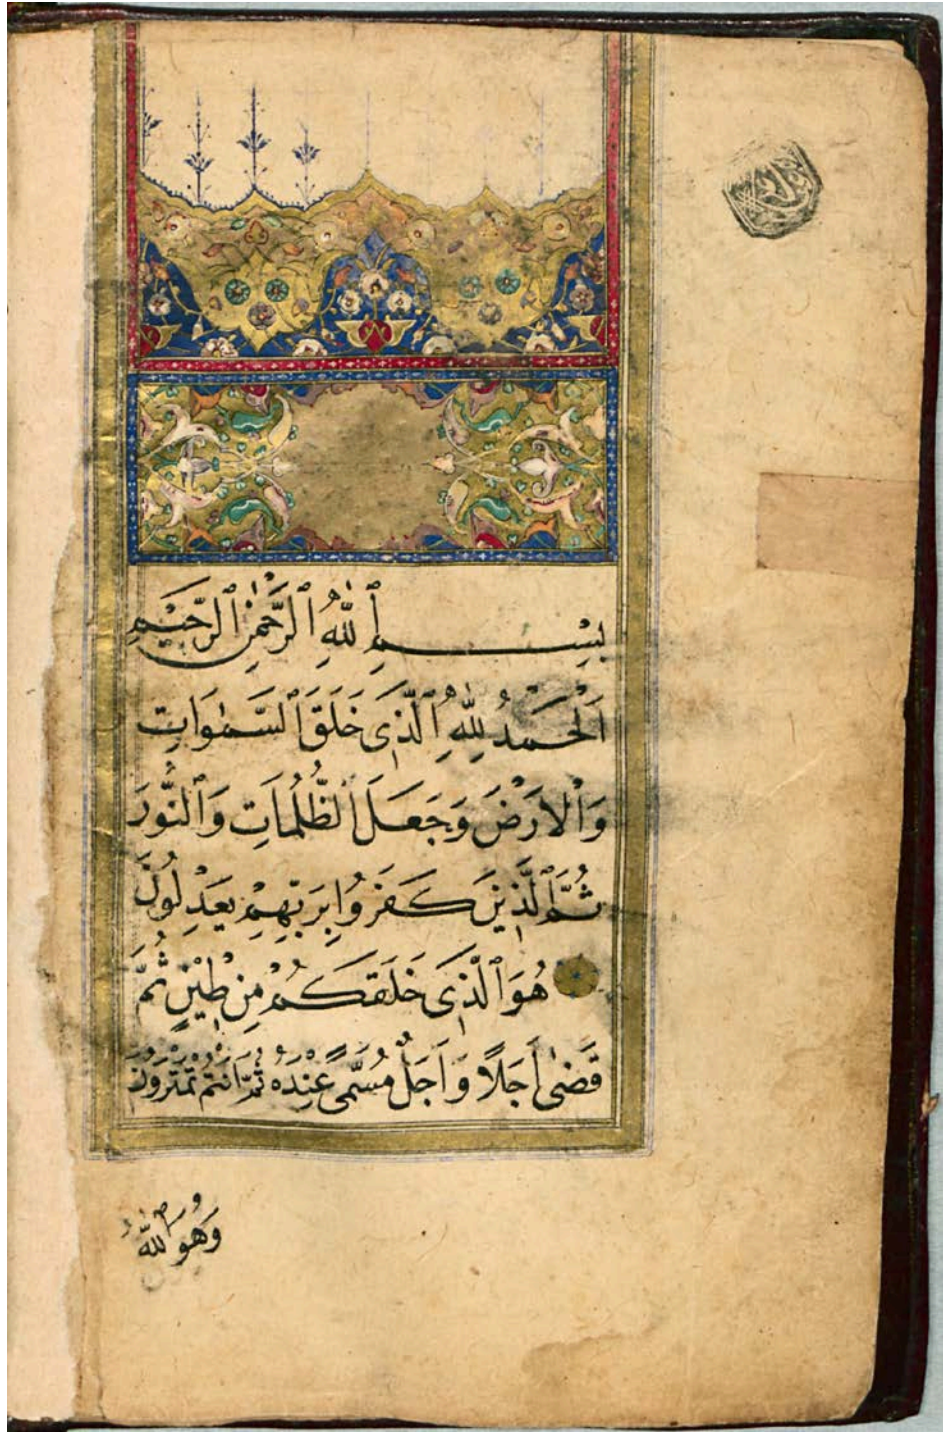 بِسْمِ ٱللّٰهِ ٱلرَّحْمٰنِ ٱلرَّحِيمِ
اَلْحَمْدُ لِلّٰهِ ٱلَّذِى خَلَقَ ٱلسَّمٰوَاتِ
وَٱلْاَرْضَ وَجَعَلَ ٱلظُّلُمَاتِ وَٱلنُّورَ
ثُمَّ ٱلَّذِينَ كَفَرُوا بِرَبِّهِمْ يَعْدِلُونَ
هُوَ ٱلَّذِى خَلَقَكُمْ مِنْ طِينٍ ثُمَّ
قَضٰى اَجَلًا وَاَجَلٌ مُسَمًّى عِنْدَهُ ثُمَّ اَنْتُمْ تَمْتَرُونَ
وَهُوَ ٱللّٰهُ